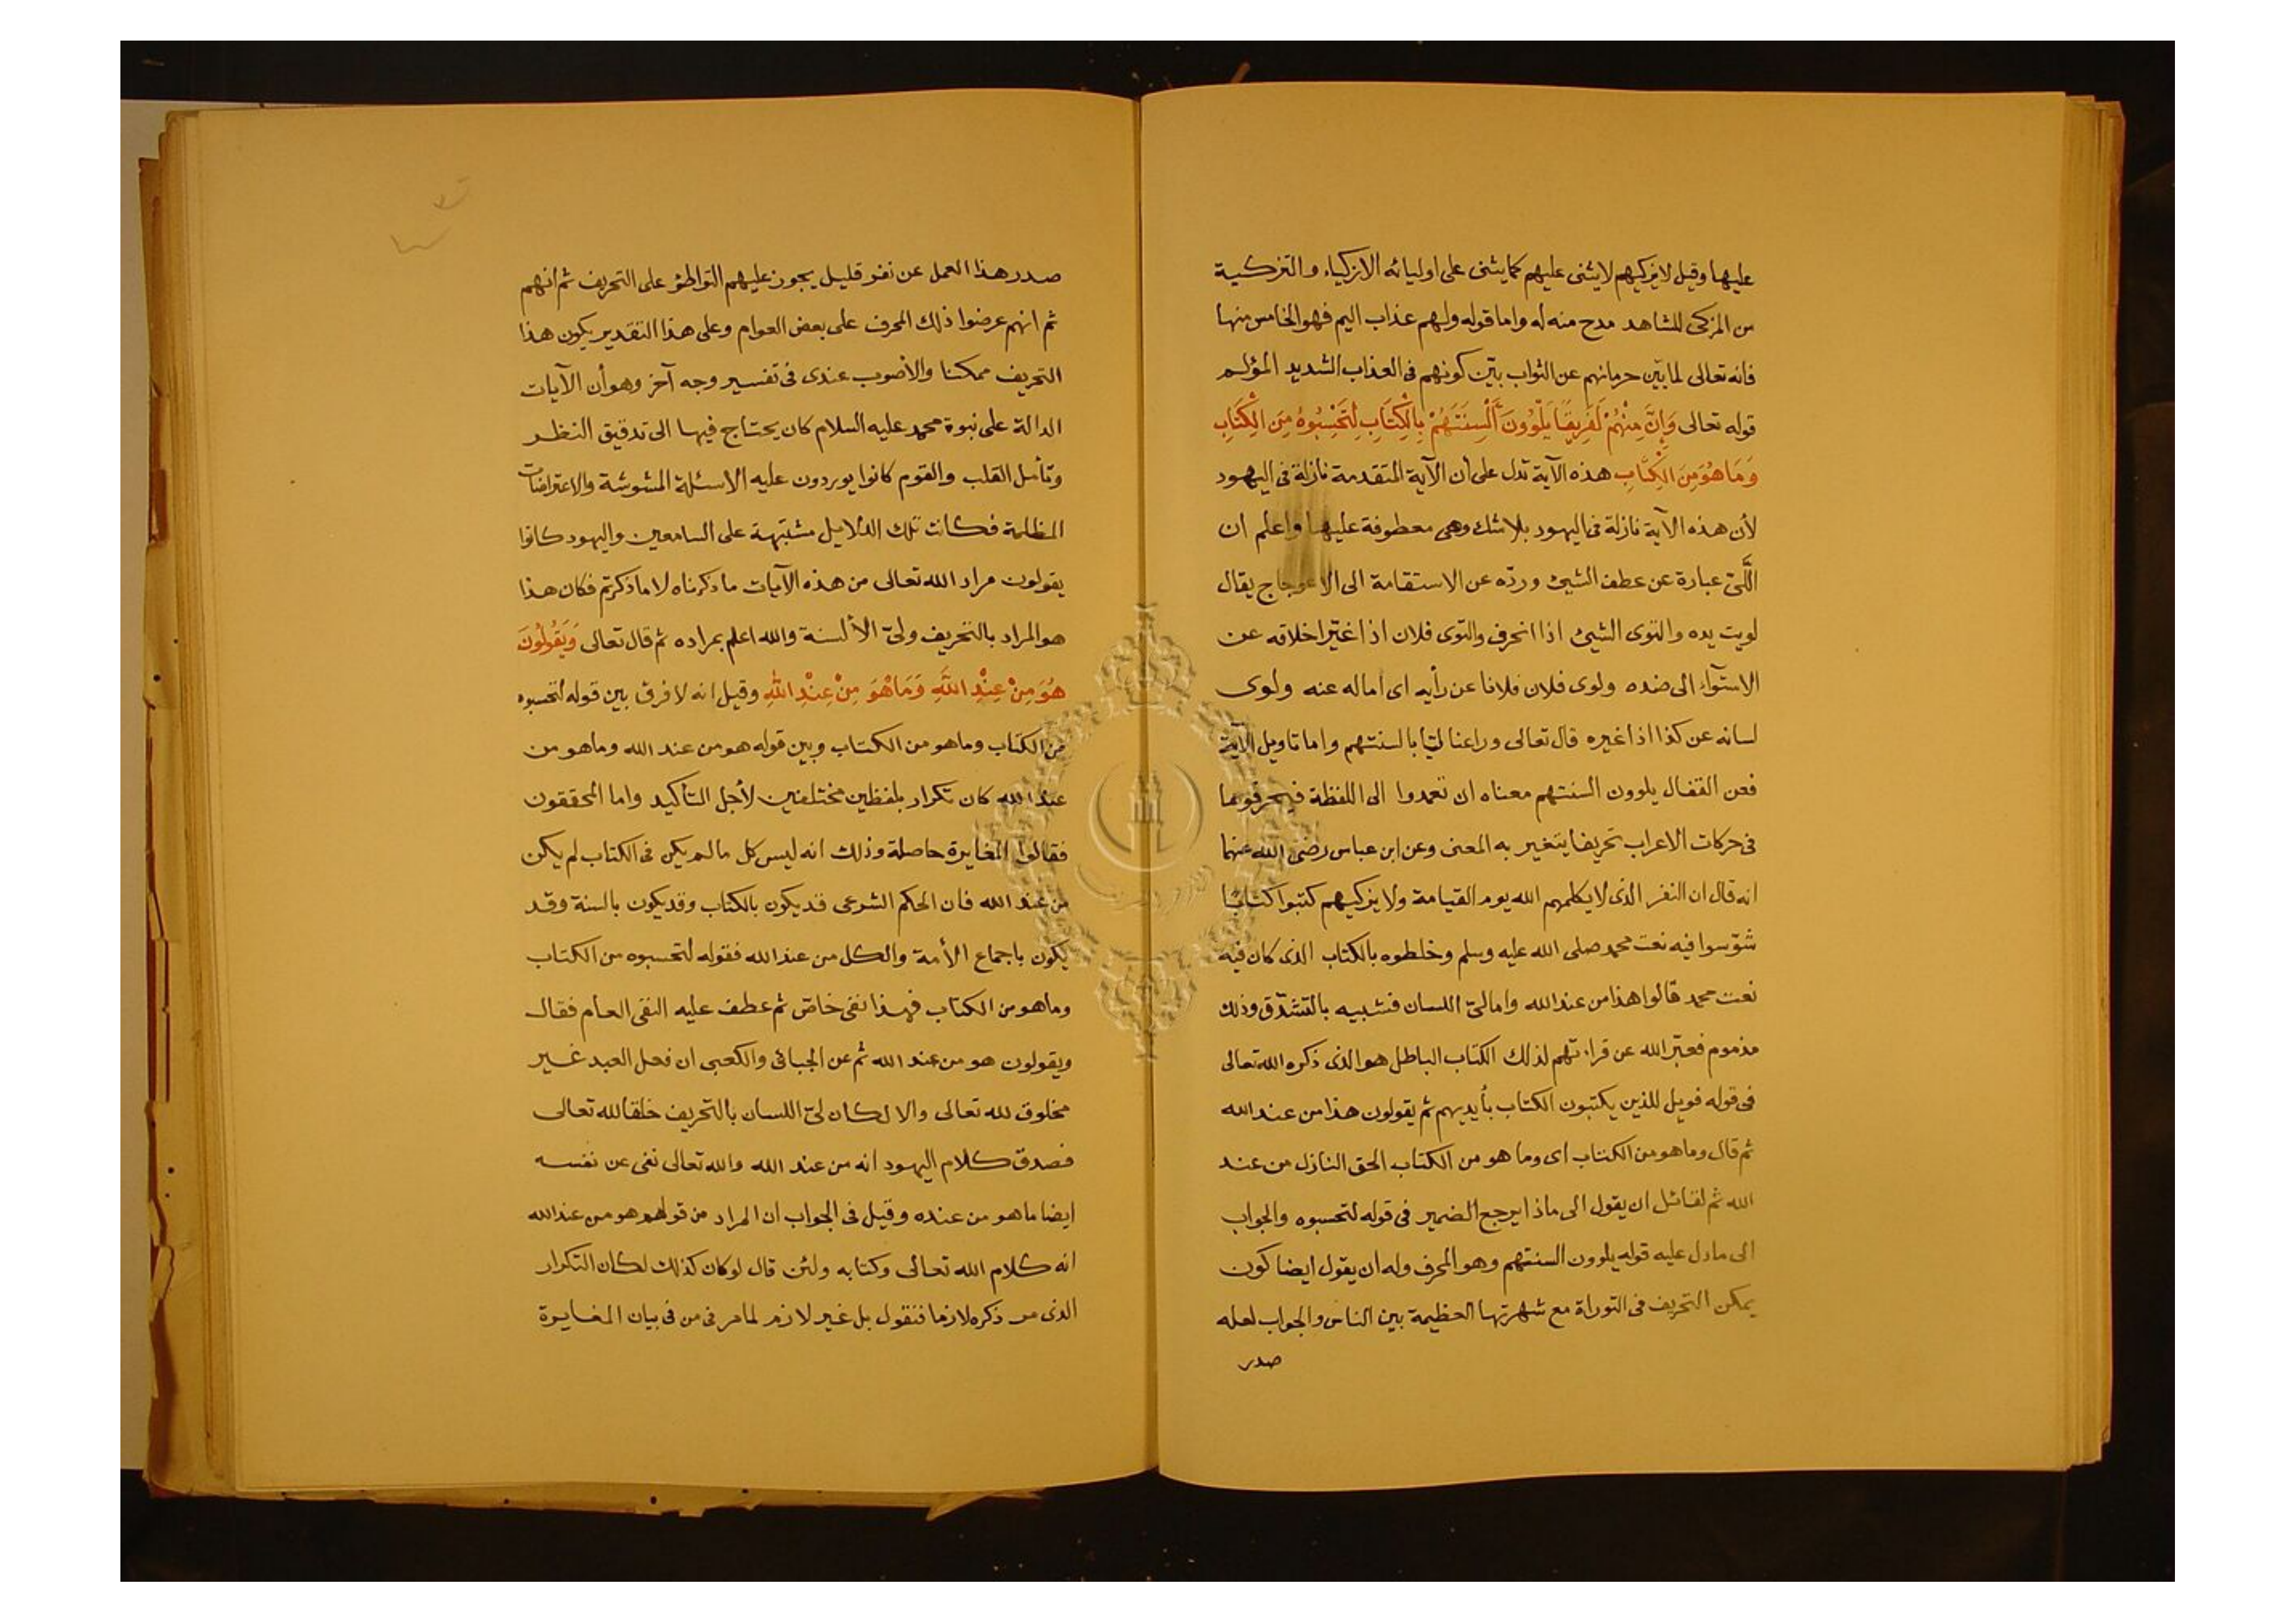 عليها وقيل لا يزكيهم لا يثنى عليهم كما يثنى على اوليائه الازكياء والتزكية
من المزكى للشاهد مدح منه له واما قوله ولهم عذاب اليم فهو الخامس منها
فانه تعالى لما بيّن حرمانهم عن الثواب بيّن كونهم فى العذاب الشديد المؤلم
قوله تعالى وَإِنَّ مِنْهُمْ لَفَرِيقًا يَلْوُونَ أَلْسِنَتَهُمْ بِالْكِتَابِ لِتَحْسِبُوهُ مِنَ الْكِتَابِ
وَمَا هُوَ مِنَ الْكِتَابِ هذه الآية تدل على أن الآية المتقدمة نازلة فى اليهود
لأن هذه الآية نازلة فى اليهود بلا شك وهى معطوفة عليها واعلم ان
اللَّىّ عبارة عن عطف الشيئ وردّه عن الاستقامة الى الاعوجاج يقال
لويت يده والتوى الشيئ اذا انحرف والتوى فلان اذا غيّر اخلاقه عن
الاستوآء الى ضده ولوى فلان فلانا عن رأيه اى اماله عنه ولوى
لسانه عن كذا اذا غيره قال تعالى وراعنا ليّا بالسنتهم واما تاويل الآية
فعن القفال يلوون السنتهم معناه ان تعمدوا الى اللفظة فيحرفونها
فى حركات الاعراب تحريفا يتغير به المعنى وعن ابن عباس رضى الله عنهما
انه قال ان النفر الذى لا يكلمهم الله يوم القيامة ولا يزكيهم كتبوا كتابًا
شوّسوا فيه نعت محمد صلى الله عليه وسلم وخلطوه بالكتاب الذى كان فيه
نعت محمد قالوا هذا من عند الله واما لىّ اللسان فشبيه بالتشدّق وذلك
مذموم فعبّر الله عن قراءتهم لذلك الكتاب الباطل هو الذى ذكره الله تعالى
فى قوله فويل للذين يكتبون الكتاب بأيديهم ثم يقولون هذا من عند الله
ثم قال وما هو من الكتاب اى وما هو من الكتاب الحق النازل من عند
الله ثم لقائل ان يقول الى ماذا يرجع الضمير فى قوله لتحسبوه والجواب
الى ما دل عليه قوله يلوون السنتهم وهو المحرف وله ان يقول ايضا كون
يمكن التحريف فى التوراة مع شهرتها العظيمة بين الناس والجواب لعله
صدر
صدر هذا العمل عن نفر قليل يجوز عليهم التواطئ على التحريف ثم انهم
ثم انهم عرضوا ذلك المحرف على بعض العوام وعلى هذا التقدير يكون هذا
التحريف ممكنا والاصوب عندى فى تفسير وجه آخر وهو أن الآيات
الدالة على نبوة محمد عليه السلام كان يحتاج فيها الى تدقيق النظر
وتأمل القلب والقوم كانوا يوردون عليه الاسئلة المشوشة والاعتراضات
المظلمة فكانت تلك الدلايل مشبّهة على السامعين واليهود كانوا
يقولون مراد الله تعالى من هذه الآيات ما ذكرناه لا ما ذكرتم فكان هذا
هو المراد بالتحريف ولىّ الألسنة والله اعلم بمراده ثم قال تعالى وَيَقُولُونَ
هُوَ مِنْ عِنْدِ اللَّهِ وَمَا هُوَ مِنْ عِنْدِ اللَّهِ وقيل انه لا فرق بين قوله لتحسبوه
من الكتاب وما هو من الكتاب وبين قوله هو من عند الله وما هو من
عند الله كان تكرار بلفظين مختلفين لأجل التأكيد واما المحققون
فقالوا المغايرة حاصلة وذلك انه ليس كل ما لم يكن فى الكتاب لم يكن
من عند الله فان الحكم الشرعى قد يكون بالكتاب وقد يكون بالسنة وقد
يكون باجماع الأمة والكل من عند الله فقوله لتحسبوه من الكتاب
وما هو من الكتاب فهذا نفى خاصّ ثم عطف عليه النفى العام فقال
ويقولون هو من عند الله ثم عن الجبائى والكعبى ان فعل العبد غير
مخلوق لله تعالى والا لكان لىّ اللسان بالتحريف خلقا لله تعالى
فصدق كلام اليهود انه من عند الله والله تعالى نفى عن نفسه
ايضا ما هو من عنده وقيل فى الجواب ان المراد من قولهم هو من عند الله
انه كلام الله تعالى وكتابه ولئن قال لو كان كذلك لكان التكرار
الذى مر ذكره لازما فنقول بل غير لازم لما مر فى من فى بيان المغايرة